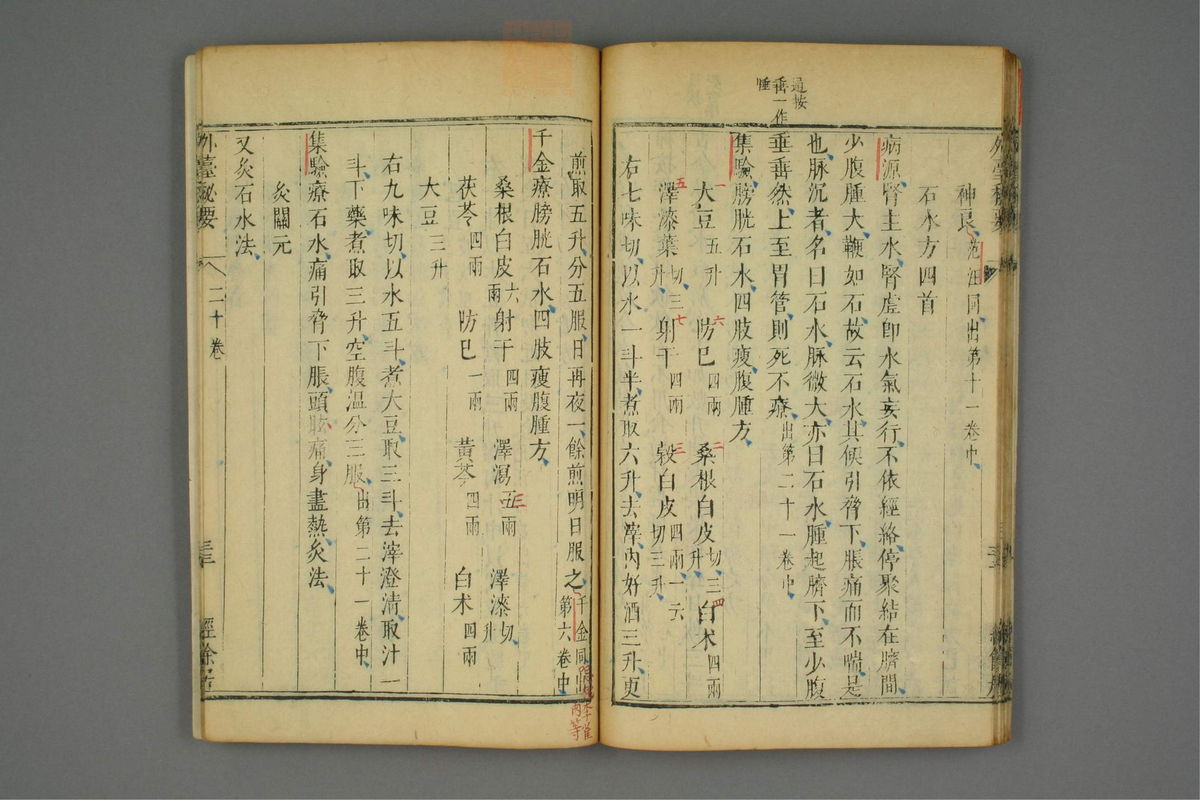 神良范汪同出第十一卷中
石水方四首
病源腎主水腎虛卽水氣妄行不依經絡停聚結在臍間
少腹腫大鞕如石故云石水其候引脅下脹痛而不喘是
也脈沉者名曰石水脈微大亦曰石水腫起臍下至少腹
垂垂然上至胃管則死不療出第二十一卷中
逼按
垂一作
腫
集驗膀胱石水四肢瘦腹腫方
一大豆五升 六防巳四兩 二桑根白皮切三升 四白术四兩
五澤漆葉切三升 七射干四兩 三穀白皮四兩一云切三升
右七味切以水一斗半煮取六升去滓內好酒三升更
煎取五升分五服日再夜一餘煎明日服之千金同出第六卷中
千金療膀胱石水四肢瘦腹腫方
桑根白皮六兩 射干四兩 澤瀉五兩 三 澤漆切升
茯苓四兩 防巳一兩 黃芩四兩 白术四兩
大豆三升
右九味切以水五斗煮大豆取三斗去滓澄清取汁一
斗下藥煮取三升空腹溫分三服出第二十一卷中
集驗療石水痛引脅下脹頭眩痛身盡熱灸法
灸關元
又灸石水法
外臺秘要 二十卷 三三 經餘居